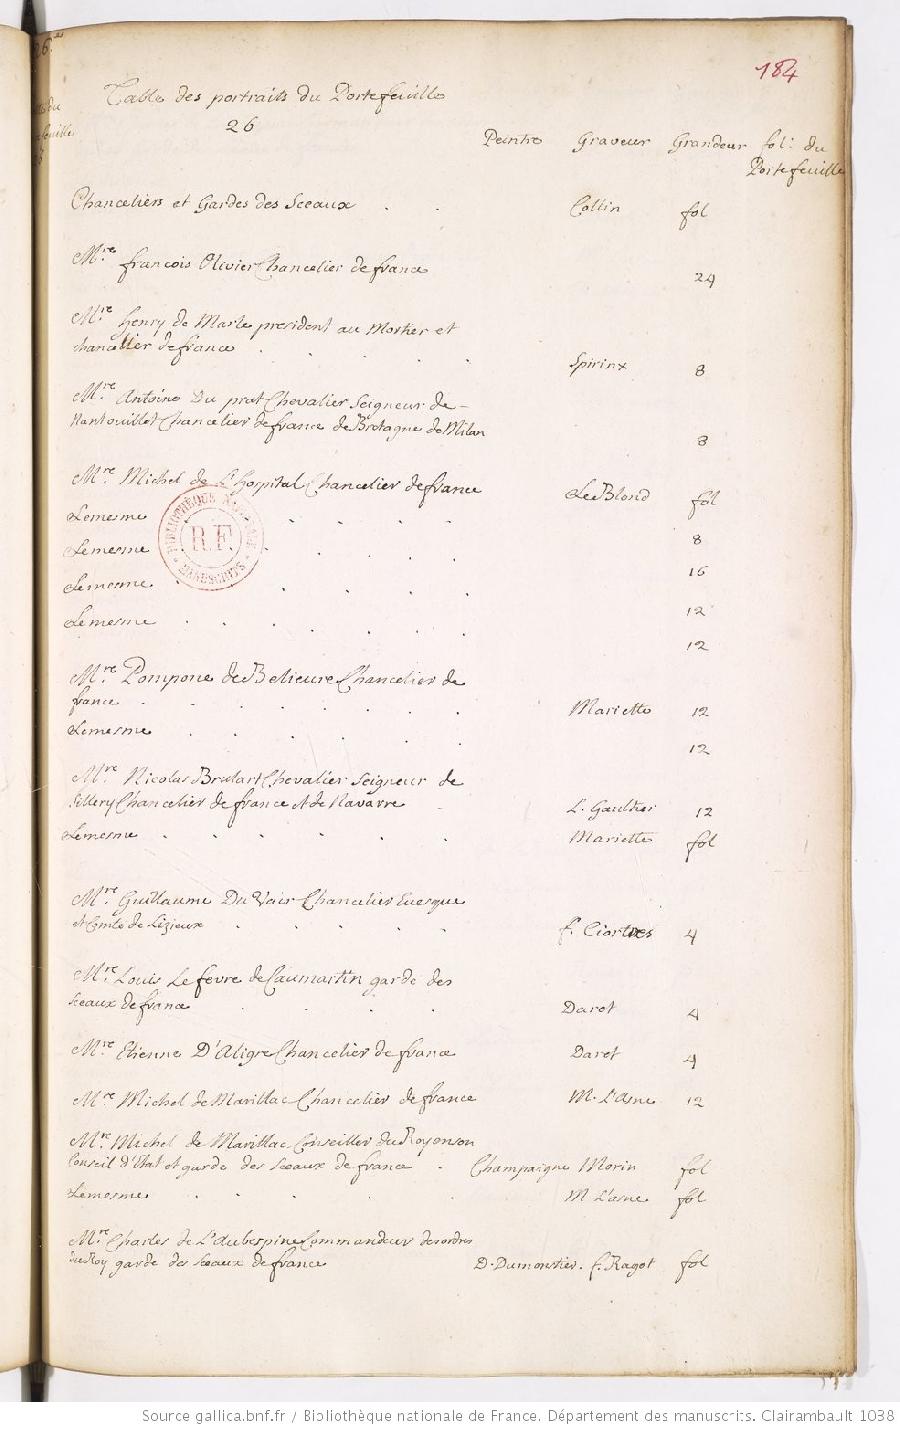 184
Table des portraits du Portefeuille
26
Peintre Graveur Grandeur fol: du
Portefeuille
Chanceliers et Gardes des Sceaux . . Collin fol
Mre. francois Olivier Chancelier de france 24
Mre. henry de Marle president au Mortier et
chancellier de france . . . . Spirinx 8
Mre. Antoine Du prat Chevalier Seigneur de
Nantouillet Chancelier de france de Bretagne de Milan 8
Mre. Michel de L'hospital Chancelier de france LeBlond fol
Lemesme . . . . 8
Lemesme . . . . 16
Lemesme . . . . 12
Lemesme . . . . 12
Mre. Pompone de Belieure Chancelier de
france . . . . Mariette 12
Lemesme . . . . 12
Mre. Nicolas Brulart Chevalier Seigneur de
Sillery Chancelier de france et de Navarre L. Gaultier 12
Lemesme . . . . Mariette fol
Mre. Guillaume Du Vair Chancelier Euesque
et Comte de Lizieux . . . . f. Ciartres 4
Mre. Louis Lefevre de Caumartin garde des
sceaux de france . . . Daret 4
Mre. Etienne D'Aligre Chancelier de france Daret 4
Mre. Michel de Marillac Chancelier de france M. L'asne 12
Mre. Michel de Marillac Conseiller du Roy en son
Conseil d'Etat et garde des sceaux de france . Champaigne Morin fol
Lemesme . . . . M L'asne fol
Mre. Charles de L'Aubespine Commandeur des ordres
du Roy garde des sceaux de france D. Dumonstier. f. Ragot fol
BIBLIOTHÈQUE NATIONALE
R.F.
MANUSCRITS
Source gallica.bnf.fr / Bibliothèque nationale de France. Département des manuscrits. Clairambault 1038